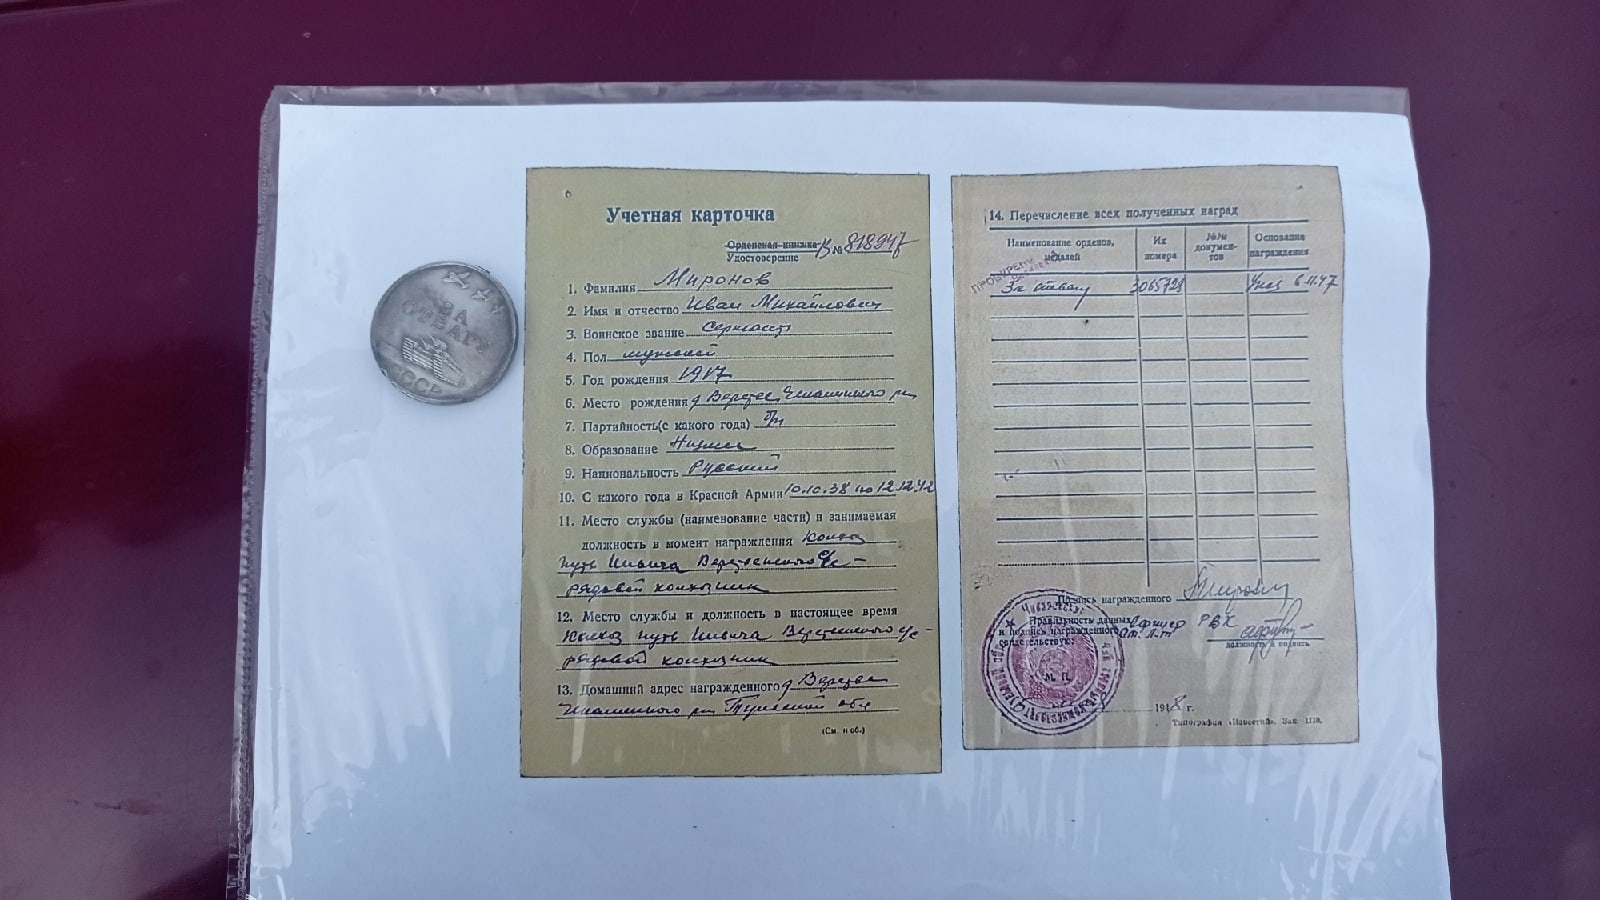 ЗА
ОТВАГУ
СССР
Учетная карточка
Орденская книжка
Удостоверение В № 818947
1. Фамилия Миронов
2. Имя и отчество Иван Михайлович
3. Воинское звание Сержант
4. Пол мужской
5. Год рождения 1917
6. Место рождения д
7. Партийность(с какого года) б/п
8. Образование Низшее
9. Национальность Русский
10. С какого года в Красной Армии 10.10.38 по 12.12.42
11. Место службы (наименование части) и занимаемая
должность в момент награждения Колхоз
путь Ильича
рядовой колхозник
12. Место службы и должность в настоящее время
Колхоз путь Ильича
рядовой колхозник
13. Домашний адрес награжденного д
(См. н об.)
14. Перечисление всех полученных наград
Наименование орденов, медалей
Их номера
№№ докумен-тов
Основание награждения
ПРОВЕРЕНО
За отвагу 3065728 Указ 6.11.47
Подпись награжденного Миронов
Правильность данных
и подпись награжденного
свидетельствую: Офицер РВК
Ст. л-т
должность и подпись
М. П.
1948 г.
Типография «Известий». Зак. 1110.